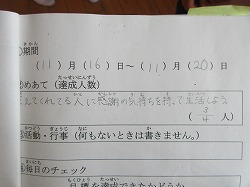 期間
(11)月(16)日～(11)月(20)日
めあて(達成人数)
てくれてる人に感謝の気持ちを持って生活しよう
(3/4人)
活動・行事(何もないときは書きません。)
毎日のチェック
目標を達成できたかどうか